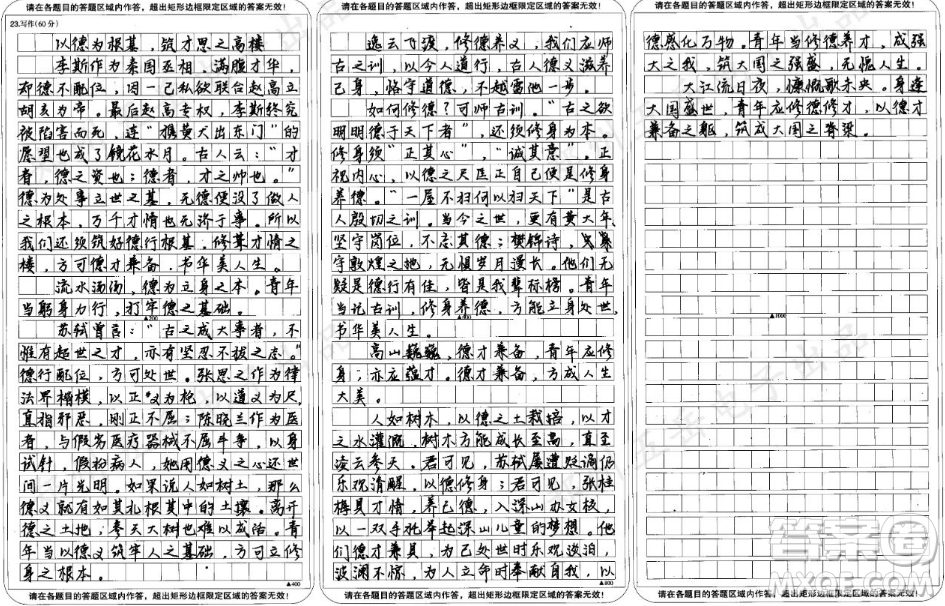 请在各题目的答题区域内作答，超出矩形边框限定区域的答案无效！
23.写作(60分)
以德为根基，筑才思之高楼
李斯作为秦国丞相，满腹才华，
却德不配位，因一己私欲联合赵高立
胡亥为帝。最后赵高专权，李斯终究
被陷害而死，连“携黄犬出东门”的
愿望也成了镜花水月。古人云：“才
者，德之资也；德者，才之帅也。”
德为处事立世之基，无德便没了做人
之根本，万千才情也无济于事。所以
我们还须筑好德行根基，修葺才情之
楼，方可德才兼备，书华美人生。
流水汤汤，德为立身之本。青年
当躬身力行，打牢德之基础。
▲200
苏轼曾言：“古之成大事者，不
惟有超世之才，亦有坚忍不拔之志。”
德行配位，方可处世。张思之作为律
法界楷模，以正义为枪，以道义为尺，
直指邪恶，刚正不屈；陈晓兰作为医
者，与假劣医疗器械不屈斗争，以身
试针，假扮病人，她用德义之心还世
间一片光明。如果说人如树土，那么
德义就有如其扎根其中的土壤。离开
德之土地，参天大树也难以成活。青
年当以德义筑牢人之基础，方可立修
身之根本。
▲400
请在各题目的答题区域内作答，超出矩形边框限定区域的答案无效！
请在各题目的答题区域内作答，超出矩形边框限定区域的答案无效！
逸云飞渡，修德养义，我们应师
古之训，以今人道行，古人德义滋养
己身，恪守道德，不越雷池一步。
如何修德？可师古训。“古之欲
明明德于天下者”，还须修身为本。
修身须“正其心”，“诚其意”。正
视内心，以德之尺匡正自己便是修身
养德。“一屋不扫何以扫天下”是古
人殷切之训。当今之世，更有黄大年
坚守岗位，不忘其德；樊锦诗，
守敦煌之地，无惧岁月漫长。他们无
疑是德行有佳，皆是我辈标榜。青年
当记古训，修身养德，方能立身处世，
书华美人生。
高山巍巍，德才兼备，青年应修
身；亦应蕴才。德才兼备，方成人生
大美。
人如树木，以德之土栽培，以才
之水灌溉，树木方能成长至高，直至
凌云参天。君可见，苏轼屡遭贬谪仍
乐观清醒，以德修身；君可见，张桂
梅具才情，养己德，入深山办女校，
以一双手托举起深山儿童的梦想。他
们德才兼具，为己处世时乐观淡泊，
波澜不惊，为人立命时奉献自我，以
▲800
请在各题目的答题区域内作答，超出矩形边框限定区域的答案无效！
请在各题目的答题区域内作答，超出矩形边框限定区域的答案无效！
德感化万物。青年当修德养才，成强
大之我，筑大国之强盛，无愧人生。
大江流日夜，慷慨歌未央。身逢
大国盛世，青年应修德修才，以德才
兼备之躯，筑成大国之脊梁。
▲1000
请在各题目的答题区域内作答，超出矩形边框限定区域的答案无效！
答案圈
MXQE.COM